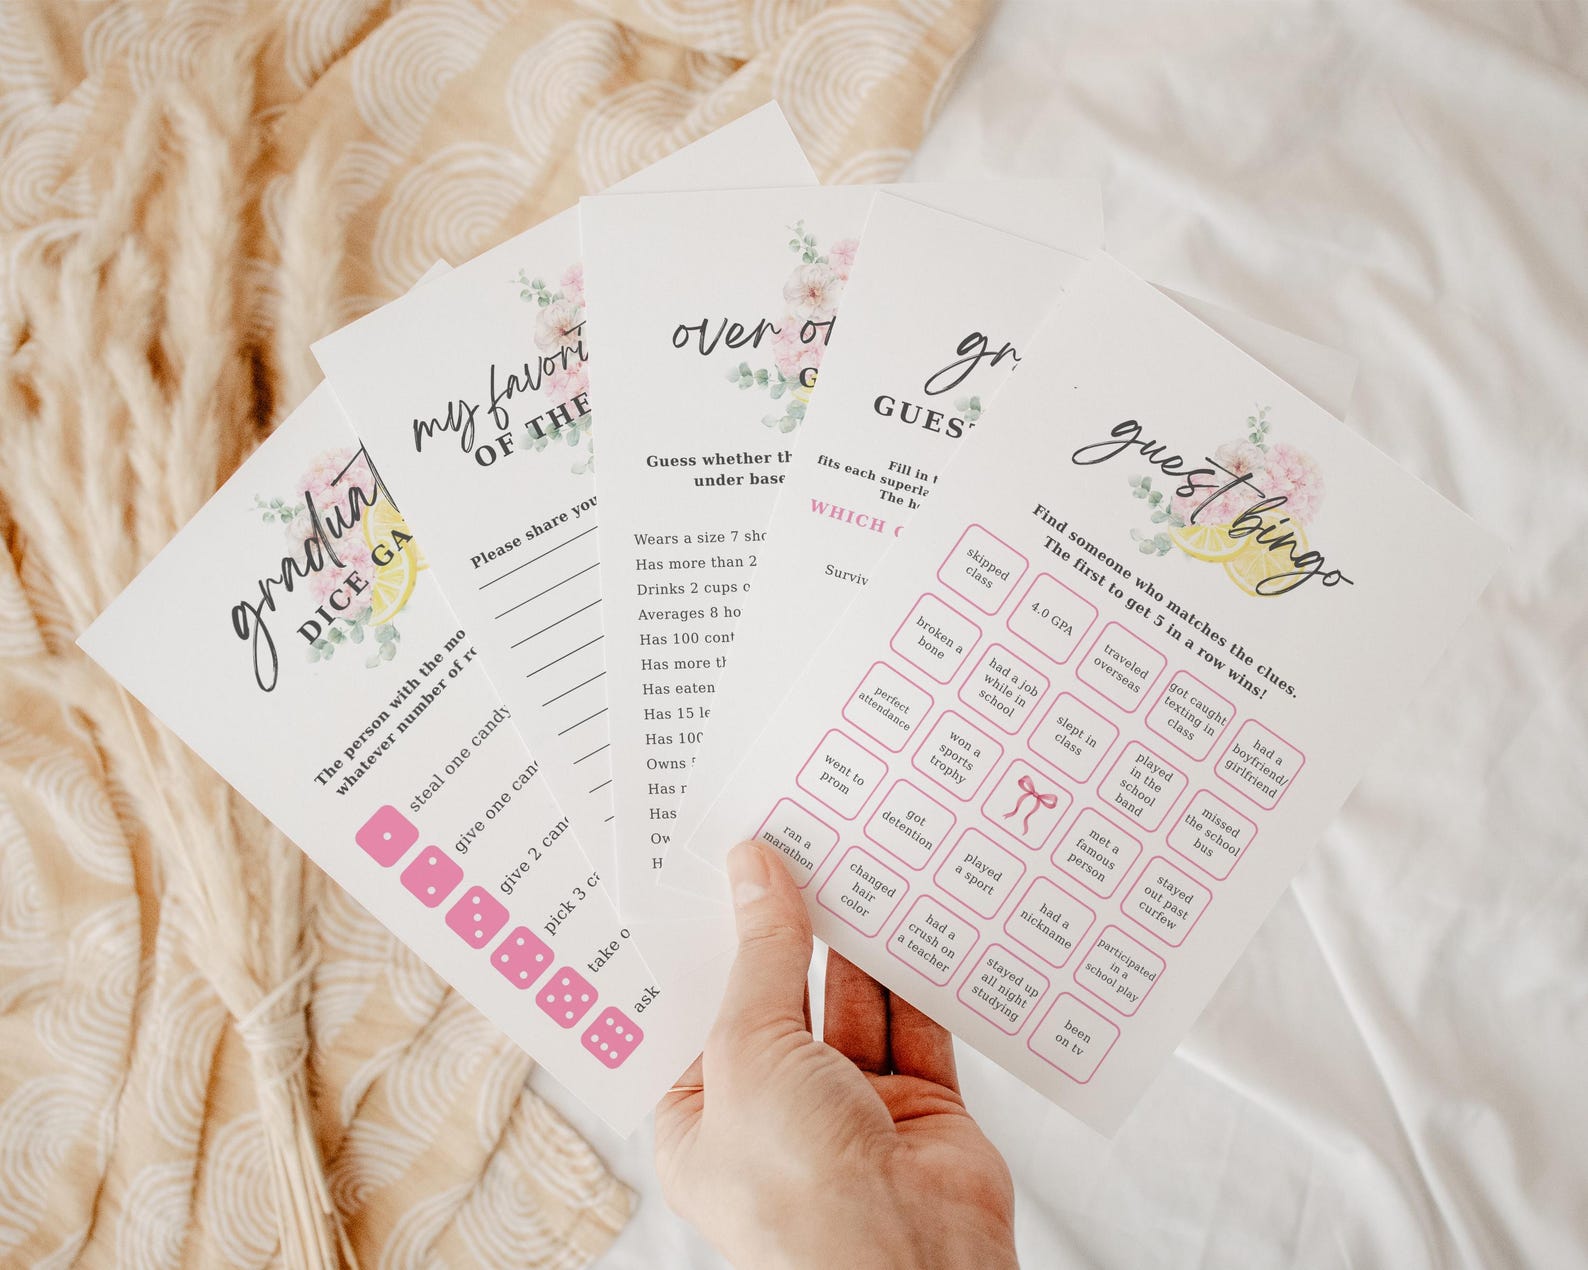 graduat
DICE GA
The person with the mo
whatever number of ro
steal one candy
give one cand
give 2 cand
pick 3 ca
take o
ask
my favori
OF THE
Please share you
over or
G
Guess whether th
under base
Wears a size 7 sho
Has more than 2
Drinks 2 cups o
Averages 8 hou
Has 100 cont
Has more th
Has eaten
Has 15 le
Has 100
Owns
Has
Has
Ow
H
gr
GUEST
Fill in t
fits each superla
The h
WHICH
Surviv
guest bingo
Find someone who matches the clues.
The first to get 5 in a row wins!
skipped
class
4.0 GPA
traveled
overseas
got caught
texting in
class
had a
boyfriend/
girlfriend
broken a
bone
had a job
while in
school
slept in
class
played
in the
school
band
missed
the school
bus
perfect
attendance
won a
sports
trophy
met a
famous
person
stayed
out past
curfew
went to
prom
got
detention
played
a sport
had a
nickname
participated
in a
school play
ran a
marathon
changed
hair
color
had a
crush on
a teacher
stayed up
all night
studying
been
on tv